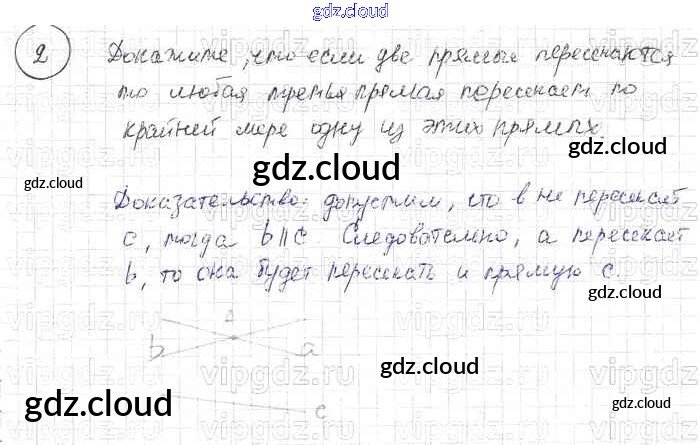 gdz.cloud
2 Докажите, что если две прямые пересекаются
то любая третья прямая пересекает по
крайней мере одну из этих прямых.
gdz.cloud
gdz.cloud
gdz.cloud
gdz.cloud
Доказательство: допустим, что в не пересекает
с, тогда b || c. Следовательно, а пересекает
b, то она будет пересекать и прямую с.
gdz.cloud
vipgdz.ru
b a
gdz.cloud
gdz.cloud
c
gdz.cloud